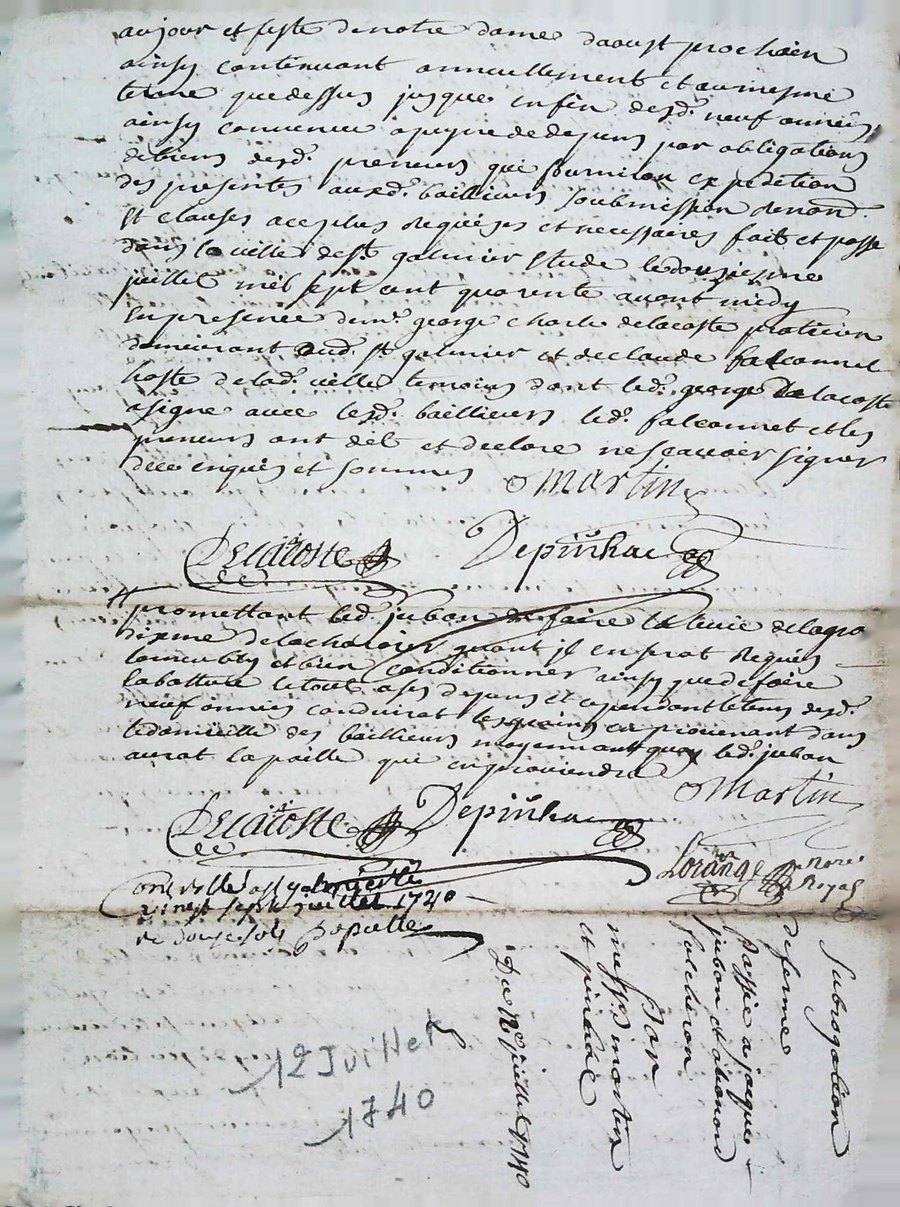 aujour et feste denotre dame daoust prochain
ainsy continuant annuellement et aumesme
terme quedessus jusques enfin desd. neuf années
ainsy convenue apeyne dedepens par obligations
debiens desd. preneurs qui fourniron expedition
des presentes auxd. baillieurs soubmission renon.
Et clauses aceplus requises et necessaires fait et passé
dans la ville de St galmier Etude ledouziesme
juillet mil sept cent quarente avant midy
En presence demr. george charle delacoste praticien
demeurant aud. St galmier et declaude falconnet
hoste delad. ville temoins dont led. george Delacoste
asigné avec lesd. baillieurs led. falconnet et les
preneurs ont dit et declaré nescavoir signer
de ce enquis et sommés
Martin
Delacoste
Depinhac
promettant led. jubon de faire la levée delagro
dixme delachal quant jl en serat requis
et bien conditionner ainsy quedefaire
labatture letout ases depens et cependant letems desd.
neuf années conduirat lesgrains en provenant dans
ledomicille des baillieurs moyennant quoy led. jubon
aurat lapaille que enproviendra
Martin
Delacoste
Depinhac
Lorange Nore Royal
Controllé a st galmier le
vingt sept juillet 1740
re douze sols
Subrogation
deferme
Passée a jacques
jubon et
Par
messrs martin
et pinhac
Du 12e juillet 1740
12 Juillet
1740